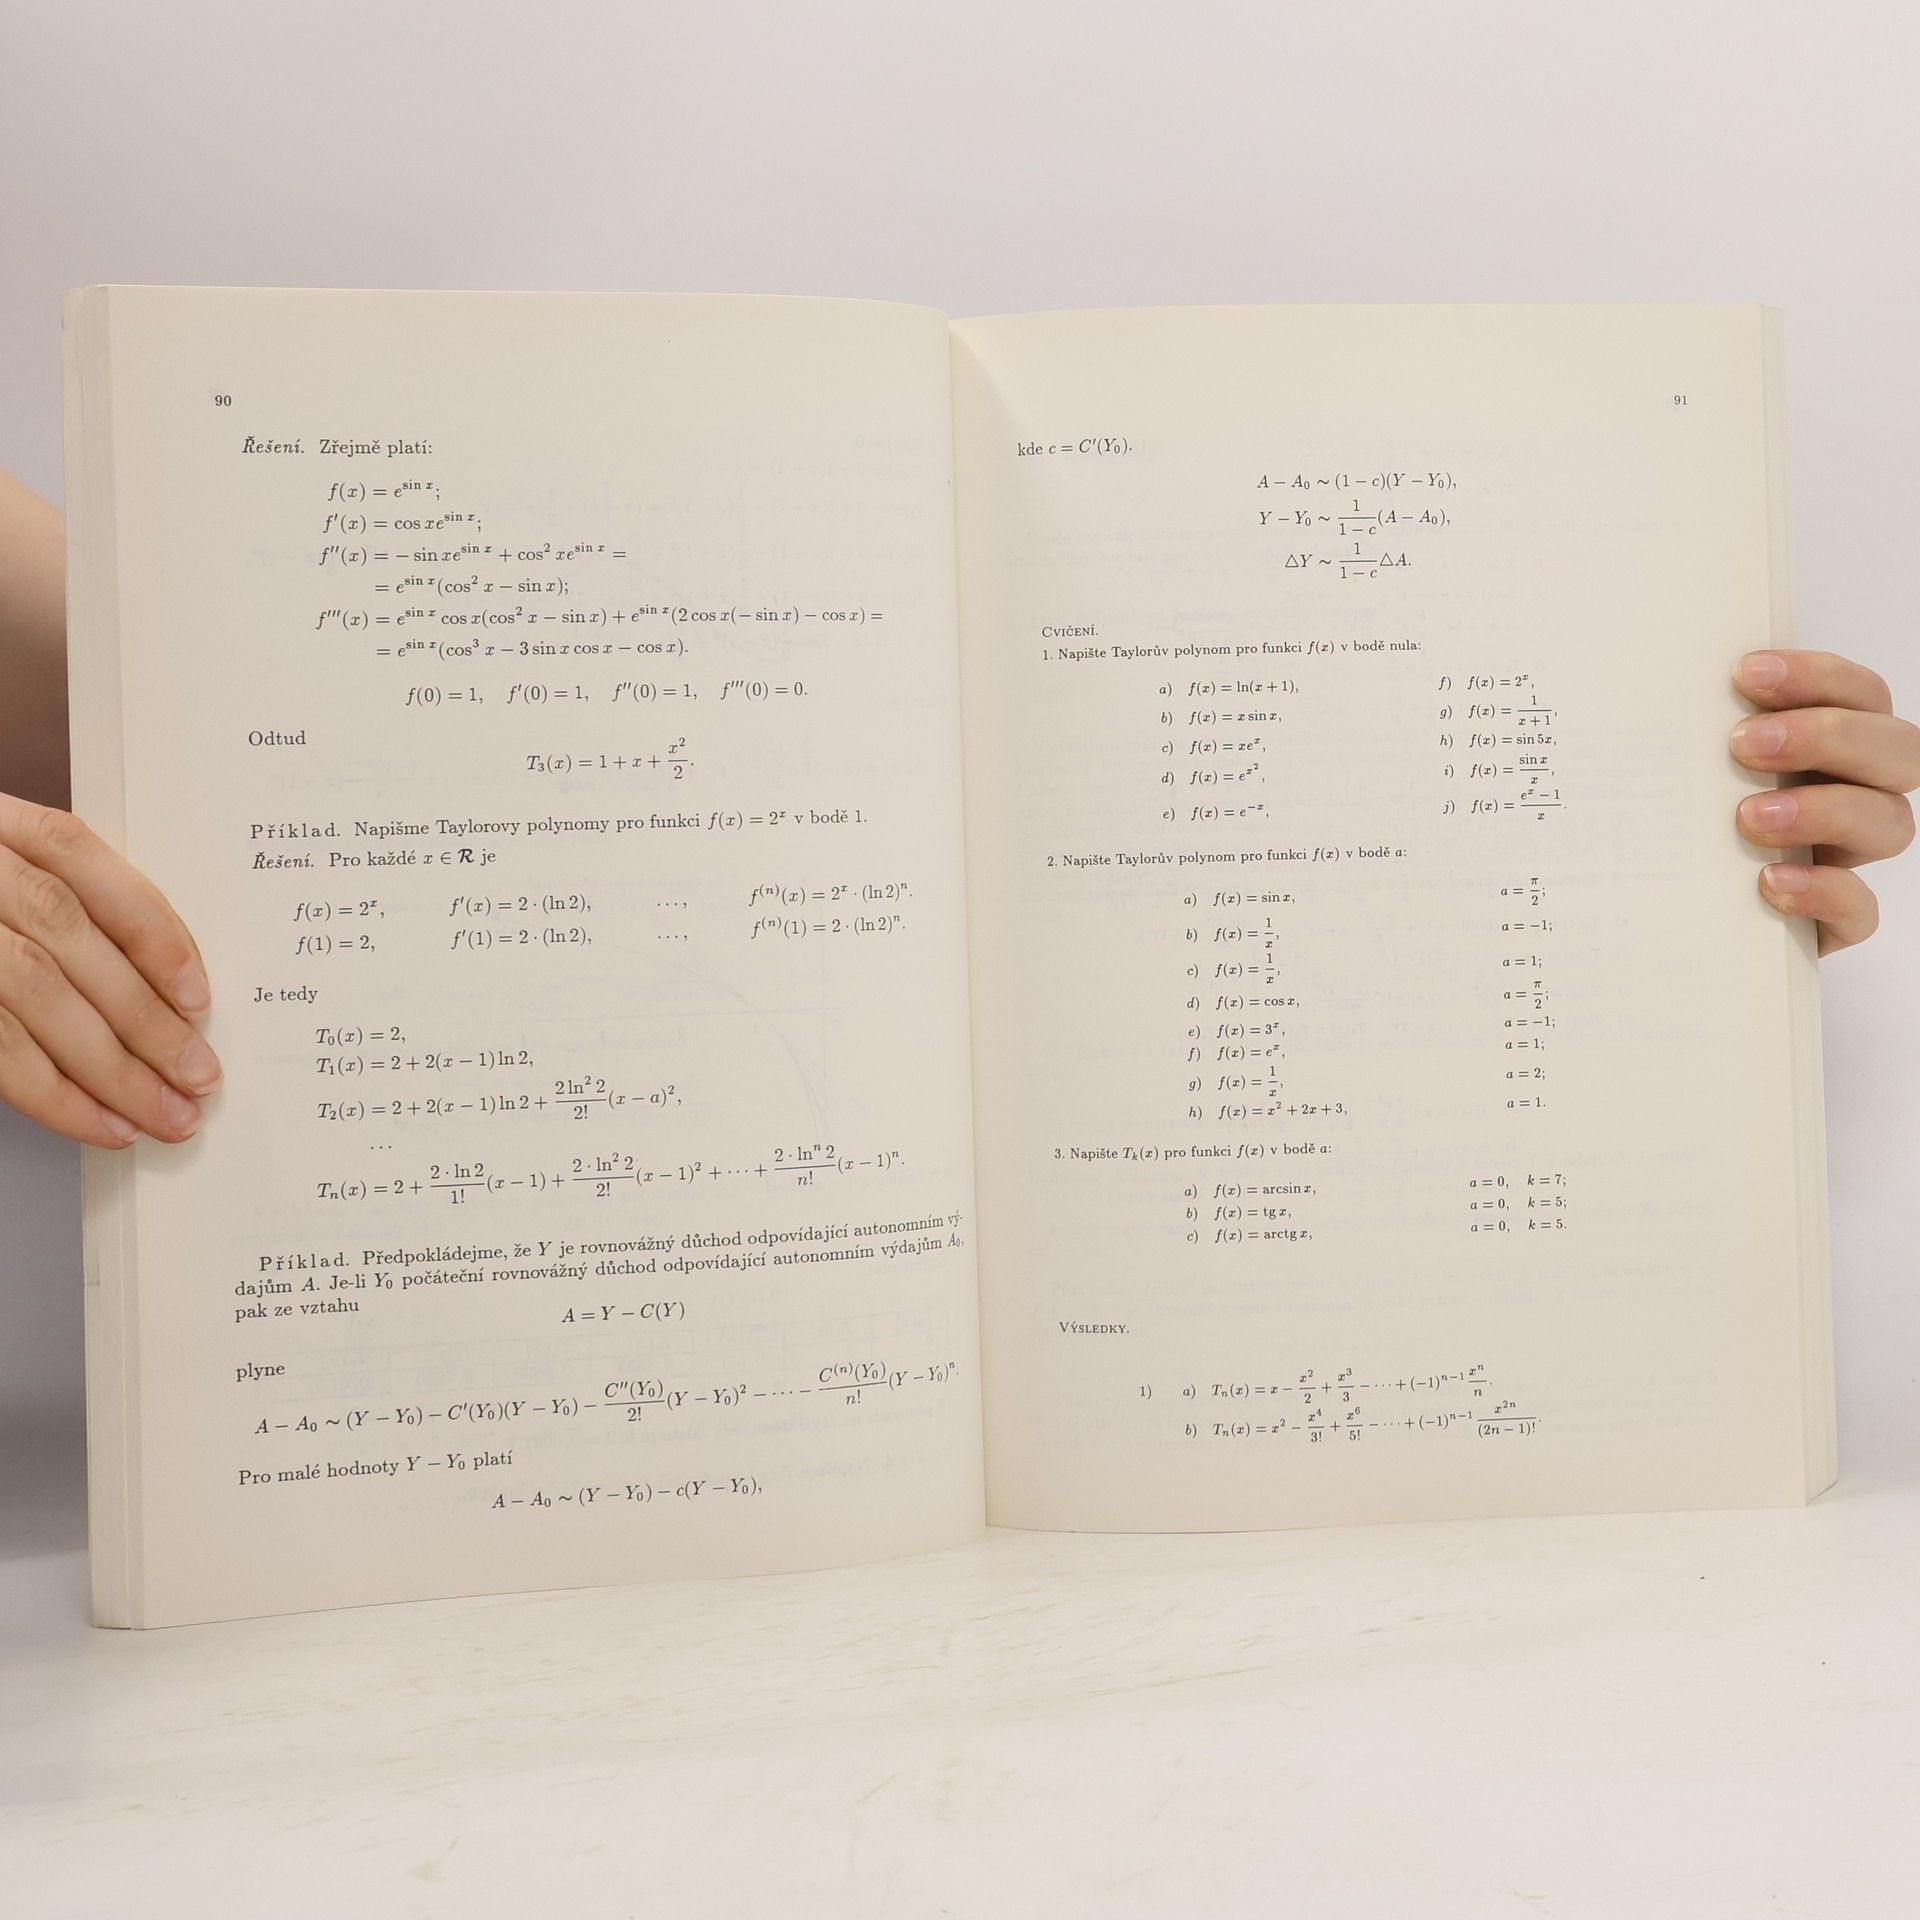 90
Řešení. Zřejmě platí:
f(x) = e^{sin x};
f′(x) = cos xe^{sin x};
f″(x) = − sin xe^{sin x} + cos² xe^{sin x} =
= e^{sin x}(cos² x − sin x);
f‴(x) = e^{sin x} cos x(cos² x − sin x) + e^{sin x}(2 cos x(− sin x) − cos x) =
= e^{sin x}(cos³ x − 3 sin x cos x − cos x).
f(0) = 1, f′(0) = 1, f″(0) = 1, f‴(0) = 0.
Odtud
T₃(x) = 1 + x + x²/2.
Příklad. Napišme Taylorovy polynomy pro funkci f(x) = 2^x v bodě 1.
Řešení. Pro každé x ∈ R je
f(x) = 2^x, f′(x) = 2 · (ln 2), ..., f^{(n)}(x) = 2^x · (ln 2)^n.
f(1) = 2, f′(1) = 2 · (ln 2), ..., f^{(n)}(1) = 2 · (ln 2)^n.
Je tedy
T₀(x) = 2,
T₁(x) = 2 + 2(x − 1) ln 2,
T₂(x) = 2 + 2(x − 1) ln 2 + 2 ln² 2/2! (x − a)²,
...
T_n(x) = 2 + 2 · ln 2/1! (x − 1) + 2 · ln² 2/2! (x − 1)² + ··· + 2 · ln^n 2/n! (x − 1)^n.
Příklad. Předpokládejme, že Y je rovnovážný důchod odpovídající autonomním vý-
dajům A. Je-li Y₀ počáteční rovnovážný důchod odpovídající autonomním výdajům A₀,
pak ze vztahu
A = Y − C(Y)
plyne
A − A₀ ∼ (Y − Y₀) − C′(Y₀)(Y − Y₀) − C″(Y₀)/2! (Y − Y₀)² − ··· − C^{(n)}(Y₀)/n! (Y − Y₀)^n.
Pro malé hodnoty Y − Y₀ platí
A − A₀ ∼ (Y − Y₀) − c(Y − Y₀),
91
kde c = C′(Y₀).
A − A₀ ∼ (1 − c)(Y − Y₀),
Y − Y₀ ∼ 1/(1 − c) (A − A₀),
△Y ∼ 1/(1 − c) △A.
CVIČENÍ.
1. Napište Taylorův polynom pro funkci f(x) v bodě nula:
a) f(x) = ln(x + 1), f) f(x) = 2^x,
b) f(x) = x sin x, g) f(x) = 1/(x + 1),
c) f(x) = xe^x, h) f(x) = sin 5x,
d) f(x) = e^{x²}, i) f(x) = sin x/x,
e) f(x) = e^{−x}, j) f(x) = (e^x − 1)/x.
2. Napište Taylorův polynom pro funkci f(x) v bodě a:
a) f(x) = sin x, a = π/2;
b) f(x) = 1/x, a = −1;
c) f(x) = 1/x, a = 1;
d) f(x) = cos x, a = π/2;
e) f(x) = 3^x, a = −1;
f) f(x) = e^x, a = 1;
g) f(x) = 1/x, a = 2;
h) f(x) = x² + 2x + 3, a = 1.
3. Napište T_k(x) pro funkci f(x) v bodě a:
a) f(x) = arcsin x, a = 0, k = 7;
b) f(x) = tg x, a = 0, k = 5;
c) f(x) = arctg x, a = 0, k = 5.
VÝSLEDKY.
1) a) T_n(x) = x − x²/2 + x³/3 − ··· + (−1)^{n−1} x^n/n.
b) T_n(x) = x² − x⁴/3! + x⁶/5! − ··· + (−1)^{n−1} x^{2n}/(2n − 1)!.